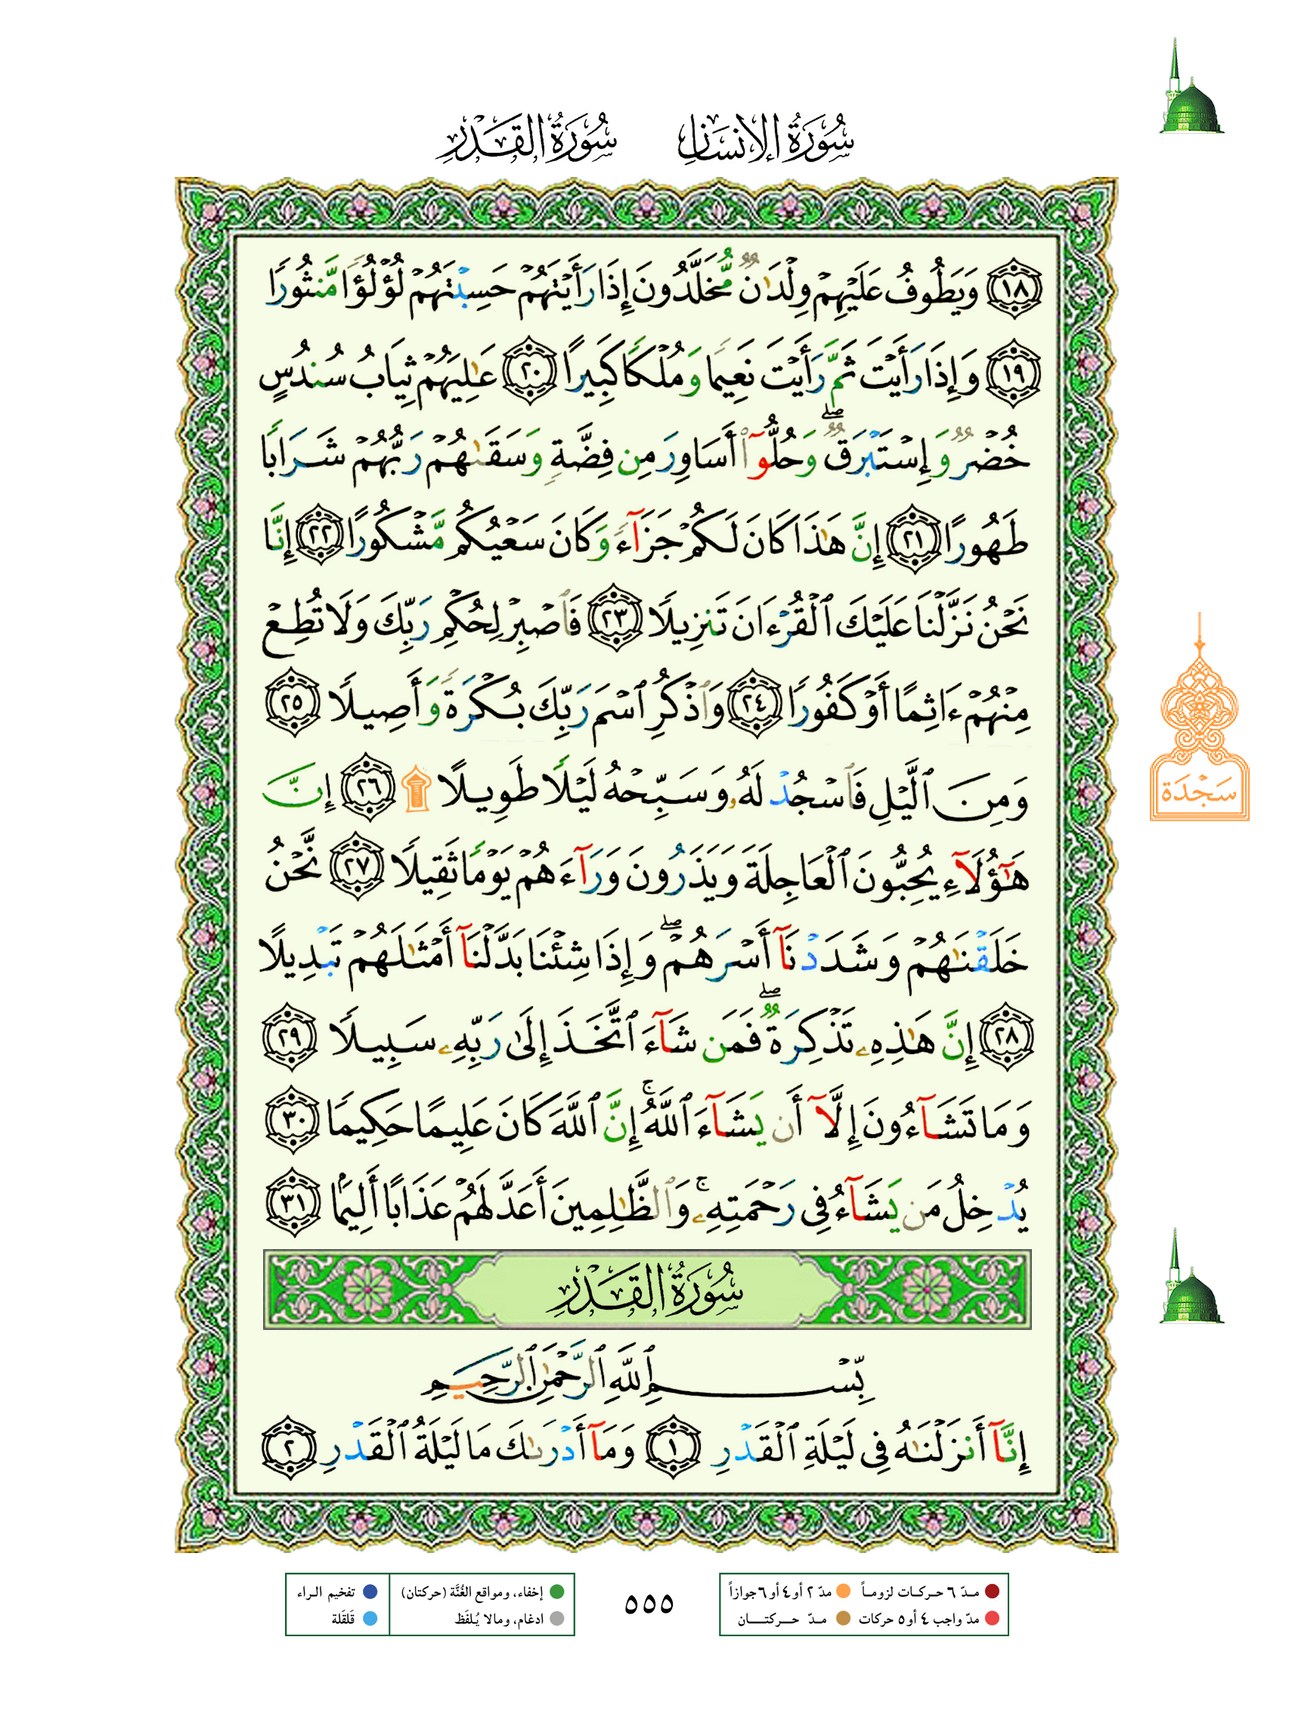 سُورَةُ الإِنسَانِ سُورَةُ القَدْرِ
﴿١٨﴾ وَيَطُوفُ عَلَيْهِمْ وِلْدَٰنٌ مُّخَلَّدُونَ إِذَا رَأَيْتَهُمْ حَسِبْتَهُمْ لُؤْلُؤًا مَّنثُورًا
﴿١٩﴾ وَإِذَا رَأَيْتَ ثَمَّ رَأَيْتَ نَعِيمًا وَمُلْكًا كَبِيرًا ﴿٢٠﴾ عَٰلِيَهُمْ ثِيَابُ سُندُسٍ
خُضْرٌ وَإِسْتَبْرَقٌ ۖ وَحُلُّوٓا۟ أَسَاوِرَ مِن فِضَّةٍ وَسَقَىٰهُمْ رَبُّهُمْ شَرَابًا
طَهُورًا ﴿٢١﴾ إِنَّ هَٰذَا كَانَ لَكُمْ جَزَآءً وَكَانَ سَعْيُكُم مَّشْكُورًا ﴿٢٢﴾ إِنَّا
نَحْنُ نَزَّلْنَا عَلَيْكَ ٱلْقُرْءَانَ تَنزِيلًا ﴿٢٣﴾ فَٱصْبِرْ لِحُكْمِ رَبِّكَ وَلَا تُطِعْ
مِنْهُمْ ءَاثِمًا أَوْ كَفُورًا ﴿٢٤﴾ وَٱذْكُرِ ٱسْمَ رَبِّكَ بُكْرَةً وَأَصِيلًا ﴿٢٥﴾
وَمِنَ ٱلَّيْلِ فَٱسْجُدْ لَهُۥ وَسَبِّحْهُ لَيْلًا طَوِيلًا ۩ ﴿٢٦﴾ إِنَّ
هَٰٓؤُلَآءِ يُحِبُّونَ ٱلْعَاجِلَةَ وَيَذَرُونَ وَرَآءَهُمْ يَوْمًا ثَقِيلًا ﴿٢٧﴾ نَّحْنُ
خَلَقْنَٰهُمْ وَشَدَدْنَآ أَسْرَهُمْ ۖ وَإِذَا شِئْنَا بَدَّلْنَآ أَمْثَٰلَهُمْ تَبْدِيلًا
﴿٢٨﴾ إِنَّ هَٰذِهِۦ تَذْكِرَةٌ ۖ فَمَن شَآءَ ٱتَّخَذَ إِلَىٰ رَبِّهِۦ سَبِيلًا ﴿٢٩﴾
وَمَا تَشَآءُونَ إِلَّآ أَن يَشَآءَ ٱللَّهُ ۚ إِنَّ ٱللَّهَ كَانَ عَلِيمًا حَكِيمًا ﴿٣٠﴾
يُدْخِلُ مَن يَشَآءُ فِى رَحْمَتِهِۦ ۚ وَٱلظَّٰلِمِينَ أَعَدَّ لَهُمْ عَذَابًا أَلِيمًۢا ﴿٣١﴾
سُورَةُ القَدْرِ
بِّسْمِ ٱللَّهِ ٱلرَّحْمَٰنِ ٱلرَّحِيمِ
إِنَّآ أَنزَلْنَٰهُ فِى لَيْلَةِ ٱلْقَدْرِ ﴿١﴾ وَمَآ أَدْرَىٰكَ مَا لَيْلَةُ ٱلْقَدْرِ ﴿٢﴾
سَجْدَة
مـدّ ٦ حـركـات لزومـاً مدّ ٢ أو ٤ أو ٦ جوازاً
مدّ واجب ٤ أو ٥ حركات مـدّ حـــركتــــان
٥٥٥
إخفاء، ومواقع الغُنَّة (حركتان) تفخيم الـراء
ادغام، ومالا يُـلفَظ قَلقَلة